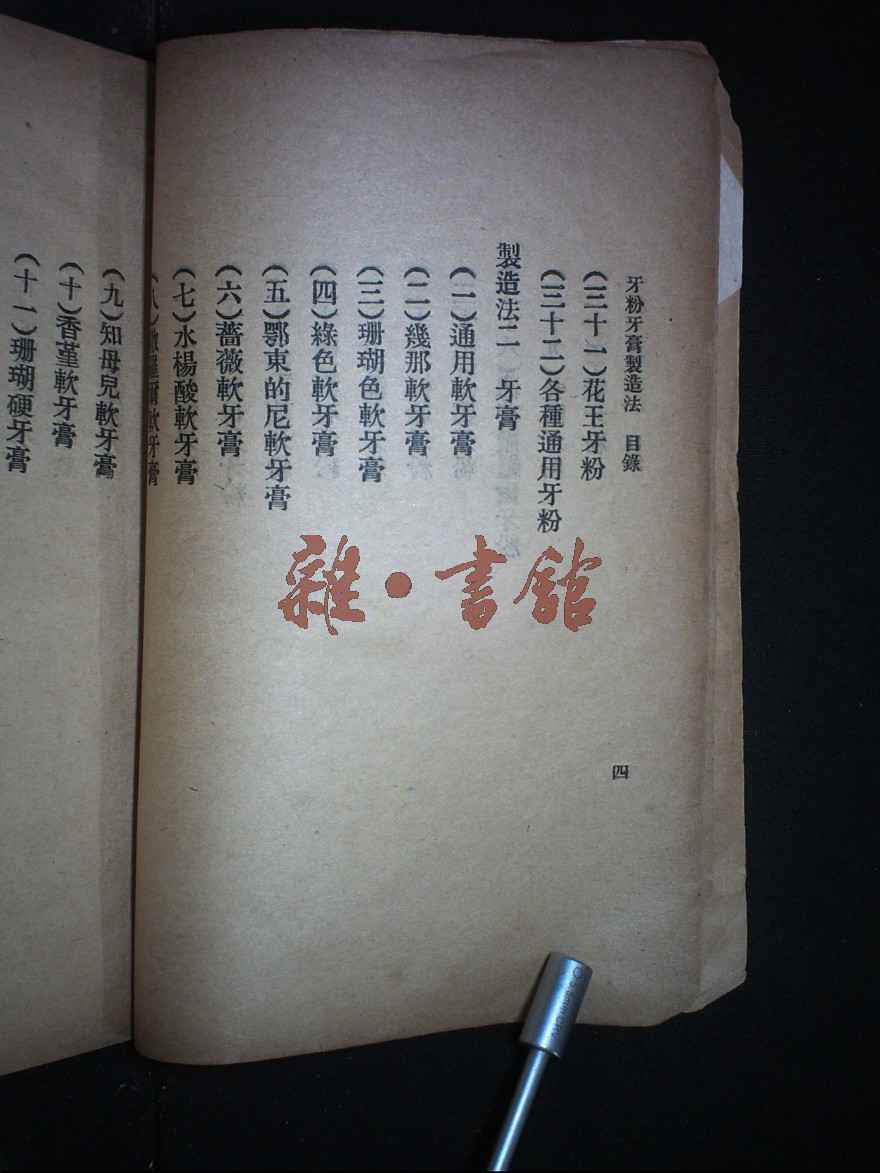 牙粉牙膏製造法 目錄
四
(三十一)花王牙粉
(三十二)各種通用牙粉
製造法二 牙膏
(一)通用軟牙膏
(二)幾那軟牙膏
(三)珊瑚色軟牙膏
(四)綠色軟牙膏
(五)鄂東的尼軟牙膏
(六)薔薇軟牙膏
(七)水楊酸軟牙膏
(八)爾軟牙膏
(九)知母兒軟牙膏
(十)香堇軟牙膏
(十一)珊瑚硬牙膏
雜·書館